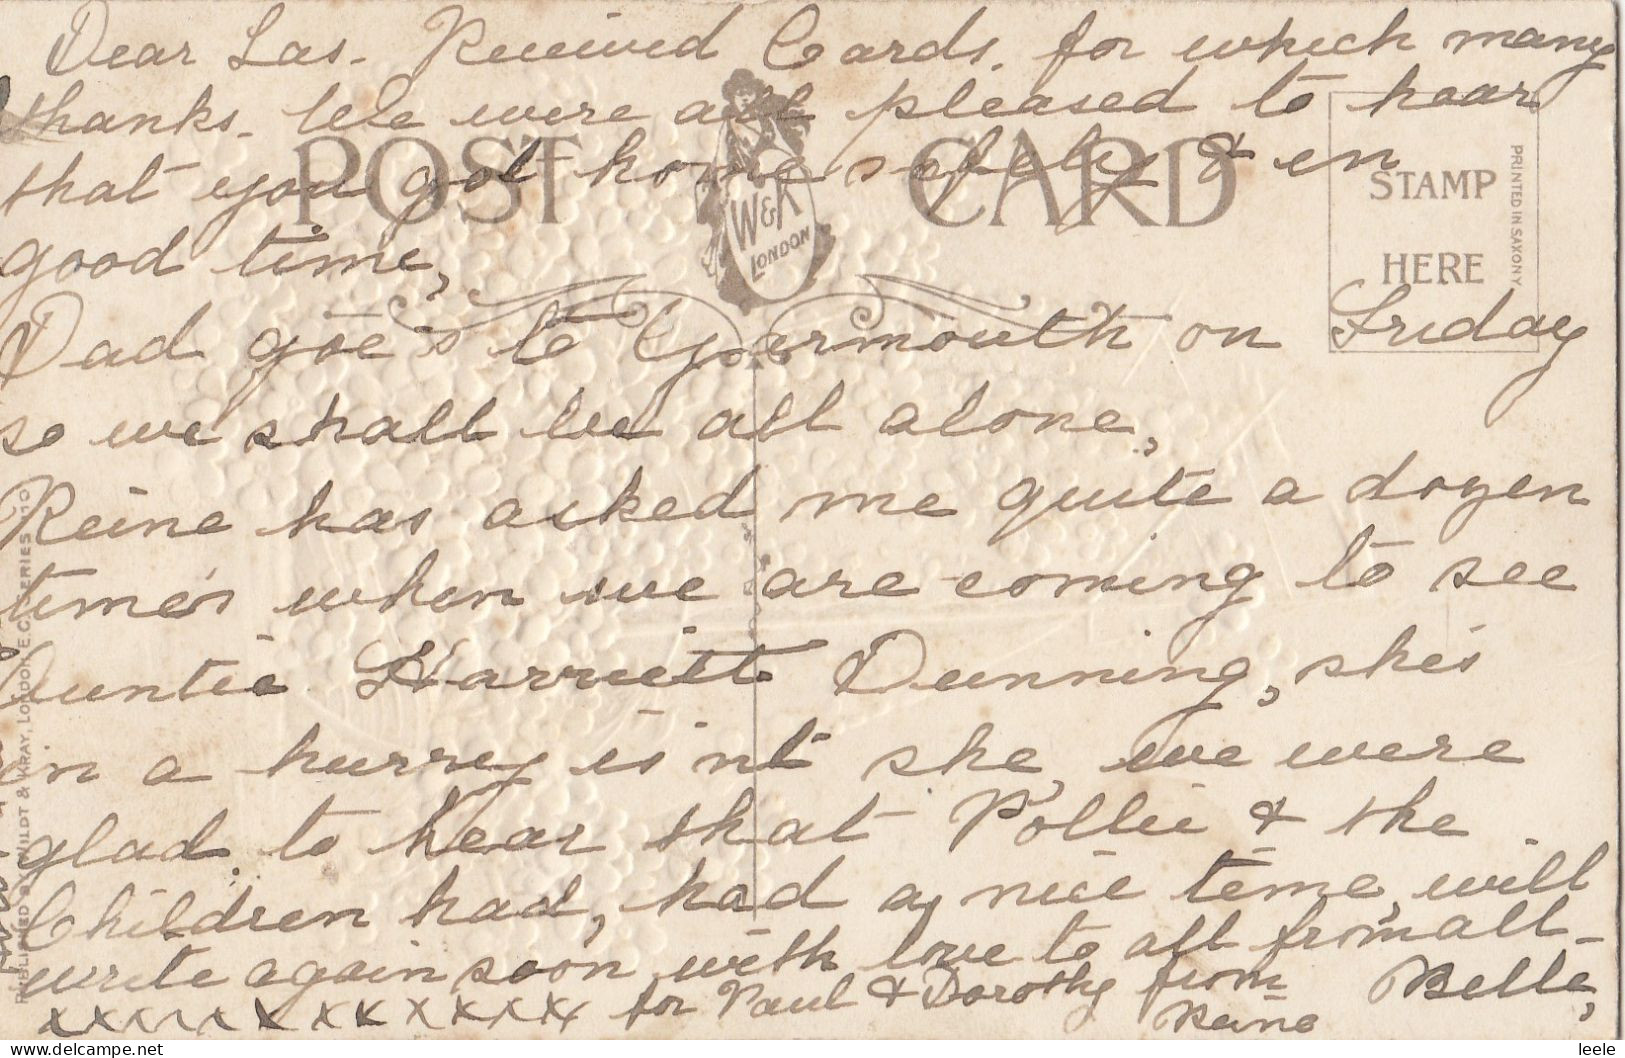 Dear Las. Received Cards. for which many
thanks. We were all pleased to hear
that you got home safely & in
good time,
Dad goes to Yarmouth on Friday
so we shall be all alone,
Reine has asked me quite a dozen
times when we are coming to see
Auntie Harriett Dunning, she's
in a hurry is'nt she, we were
glad to hear that Pollie & the
Children had, had a nice time, will
write again soon with love to all from all -
Belle,
xxxxxxxxxxxxx for Paul & Dorothy from
Reine
POST CARD
W&K
LONDON
STAMP
HERE
PRINTED IN SAXONY
PUBLISHED BY WILDT & KRAY, LONDON E.C. SERIES
leele
delcampe.net